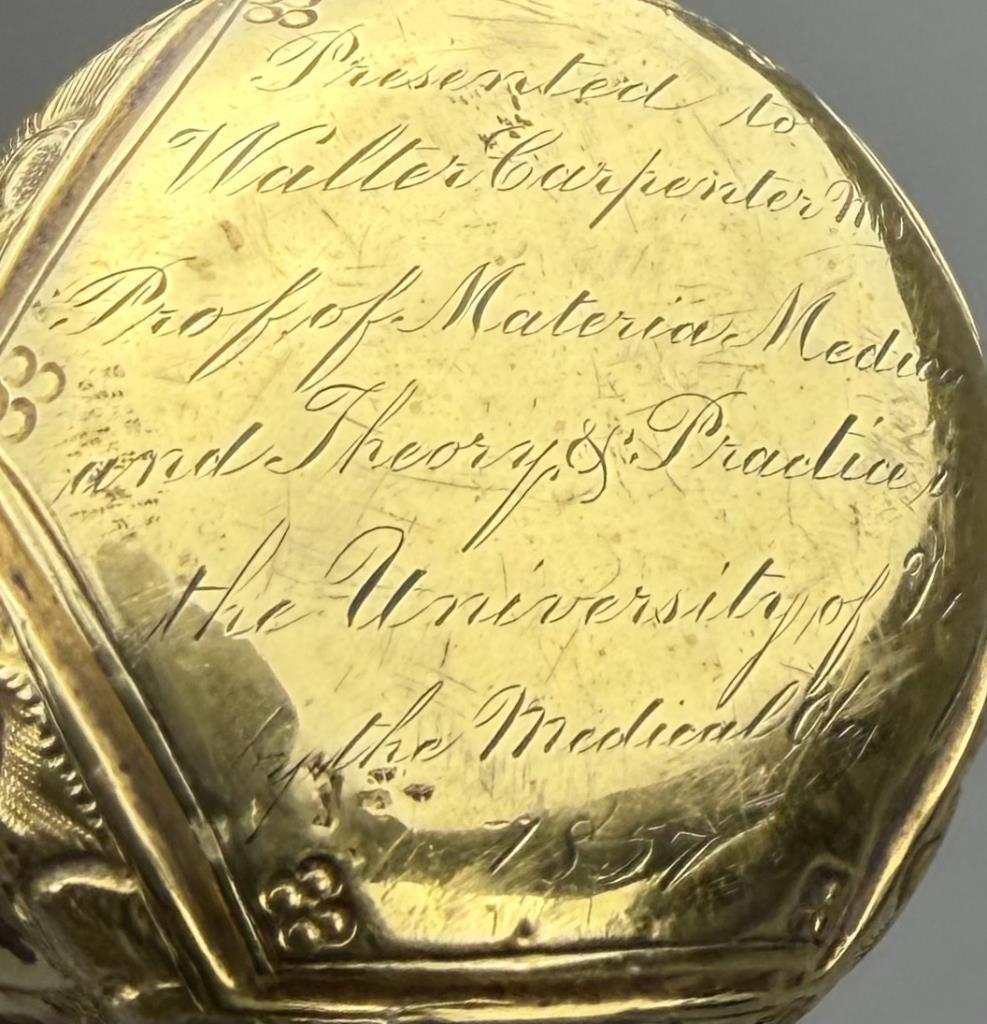 Presented to
Walter Carpenter M
Prof. of Materia Medica
and Theory & Practice
the University of
by the Medical
1857